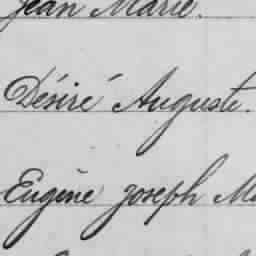 Jean Marie.
Désiré Auguste.
Eugène Joseph